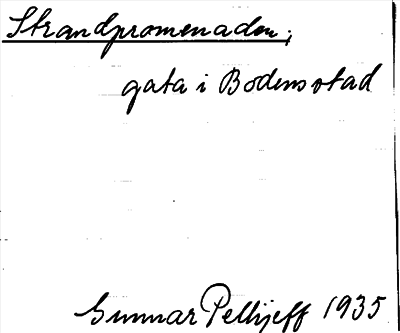 Strandpromenaden;
gata i Bodens stad
Gunnar Pellijeff 1935